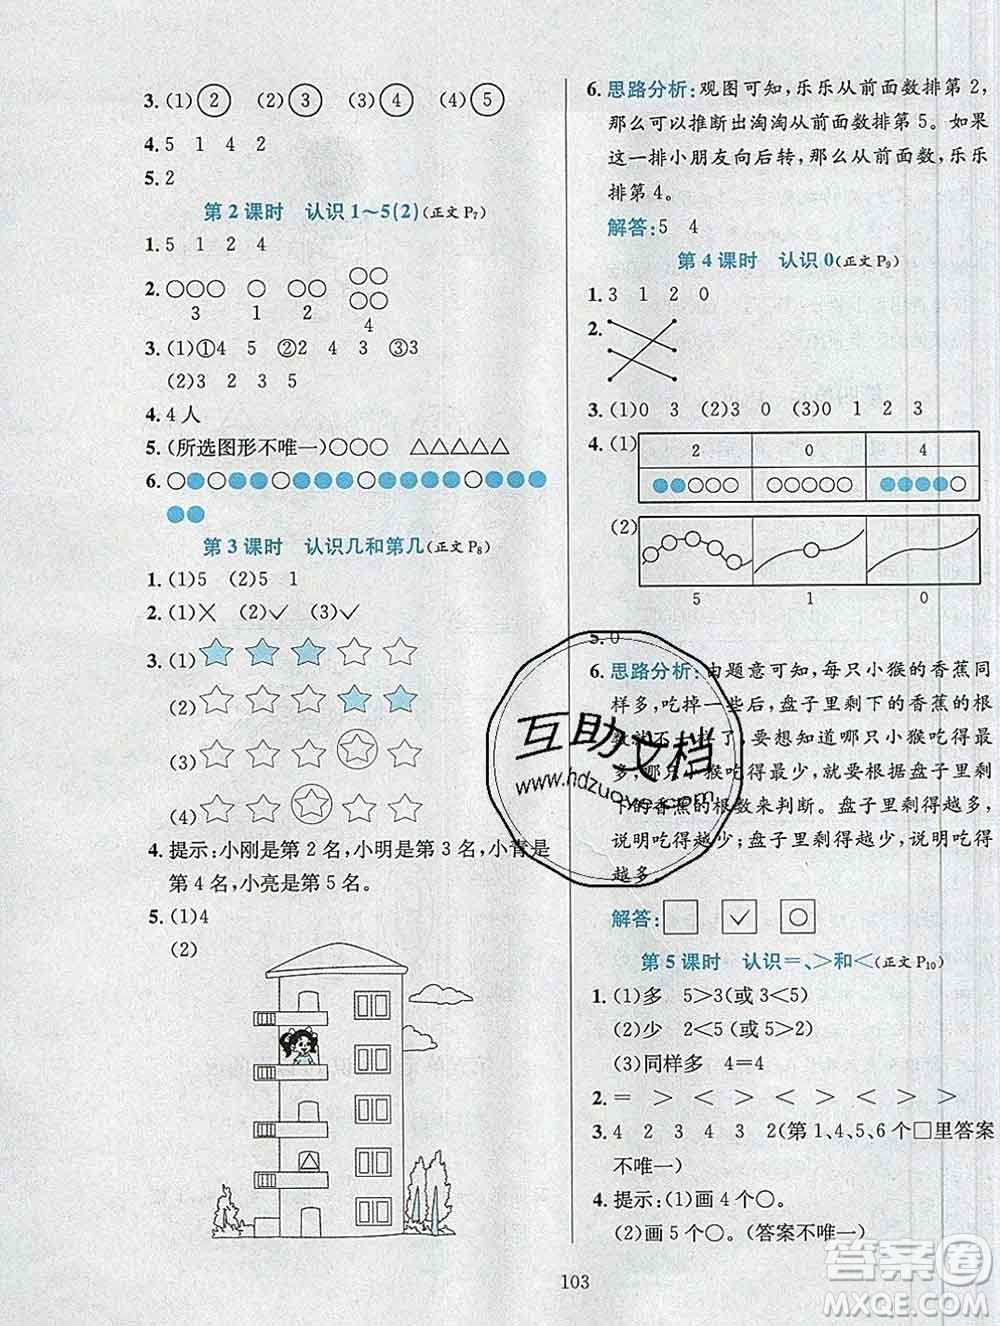 3. (1)② (2)③ (3)④ (4)⑤
4. 5 1 4 2
5. 2
第2课时 认识1~5(2)(正文P₇)
1. 5 1 2 4
2. ○○○ ○ ○○ ○○
○○
3 1 2 4
3. (1)①4 5 ②2 4 3 ③3
(2)3 2 3 5
4. 4人
5. (所选图形不唯一)○○○ △△△△△
6.
第3课时 认识几和第几(正文P₈)
1. (1)5 (2)5 1
2. (1)× (2)✓ (3)✓
3. (1)
(2)
(3)
(4)
4. 提示:小刚是第2名,小明是第3名,小青是
第4名,小亮是第5名。
5. (1)4
(2)
6. 思路分析:观图可知,乐乐从前面数排第2,
那么可以推断出淘淘从前面数排第5。如果
这一排小朋友向后转,那么从前面数,乐乐
排第4。
解答:5 4
第4课时 认识0(正文P₉)
1. 3 1 2 0
2.
3. (1)0 3 (2)3 0 (3)0 1 2 3
4. (1) 2 0 4
(2)
5 1 0
5. 0
6. 思路分析:由题意可知,每只小猴的香蕉同
样多,吃掉一些后,盘子里剩下的香蕉的根
数就不一样了,要想知道哪只小猴吃得最
多,哪只小猴吃得最少,就要根据盘子里剩
下的香蕉的根数来判断。盘子里剩得越多,
说明吃得越少;盘子里剩得越少,说明吃得
越多。
解答:□ ✓ ○
第5课时 认识=、>和<(正文P₁₀)
1. (1)多 5>3(或3<5)
(2)少 2<5(或5>2)
(3)同样多 4=4
2. = > < > < > < >
3. 4 2 3 4 3 2(第1、4、5、6个□里答案
不唯一)
4. 提示:(1)画4个○。
(2)画5个○。(答案不唯一)
103
互助文档
www.hdzuoye.com
答案圈
MXQE.COM